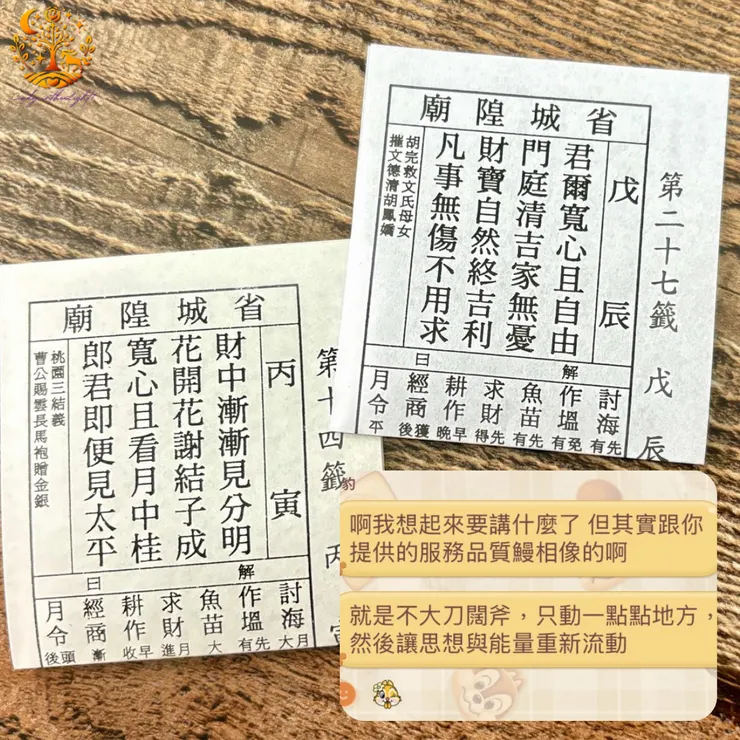 第二十七籤 戊辰
省城隍廟
戊辰
君爾寬心且自由
門庭清吉家無憂
財寶自然終吉利
凡事無傷不用求
胡完救文氏母女
摧文德清胡鳳嬌
解曰
討海 先有
作塭 免有
魚苗 先有
求財 先得
耕作 早晚
經商 獲後
月令 平
第十四籤 丙寅
省城隍廟
丙寅
財中漸漸見分明
花開花謝結子成
寬心且看月中桂
郎君即便見太平
桃園三結義
曹公賜雲長馬袍贈金銀
解曰
討海 月大
作塭 先有
魚苗 大
求財 月進
耕作 早收
經商 漸
月令 頭後
豹
啊我想起來要講什麼了 但其實跟你
提供的服務品質鰻相像的啊
就是不大刀闊斧，只動一點點地方，
然後讓思想與能量重新流動